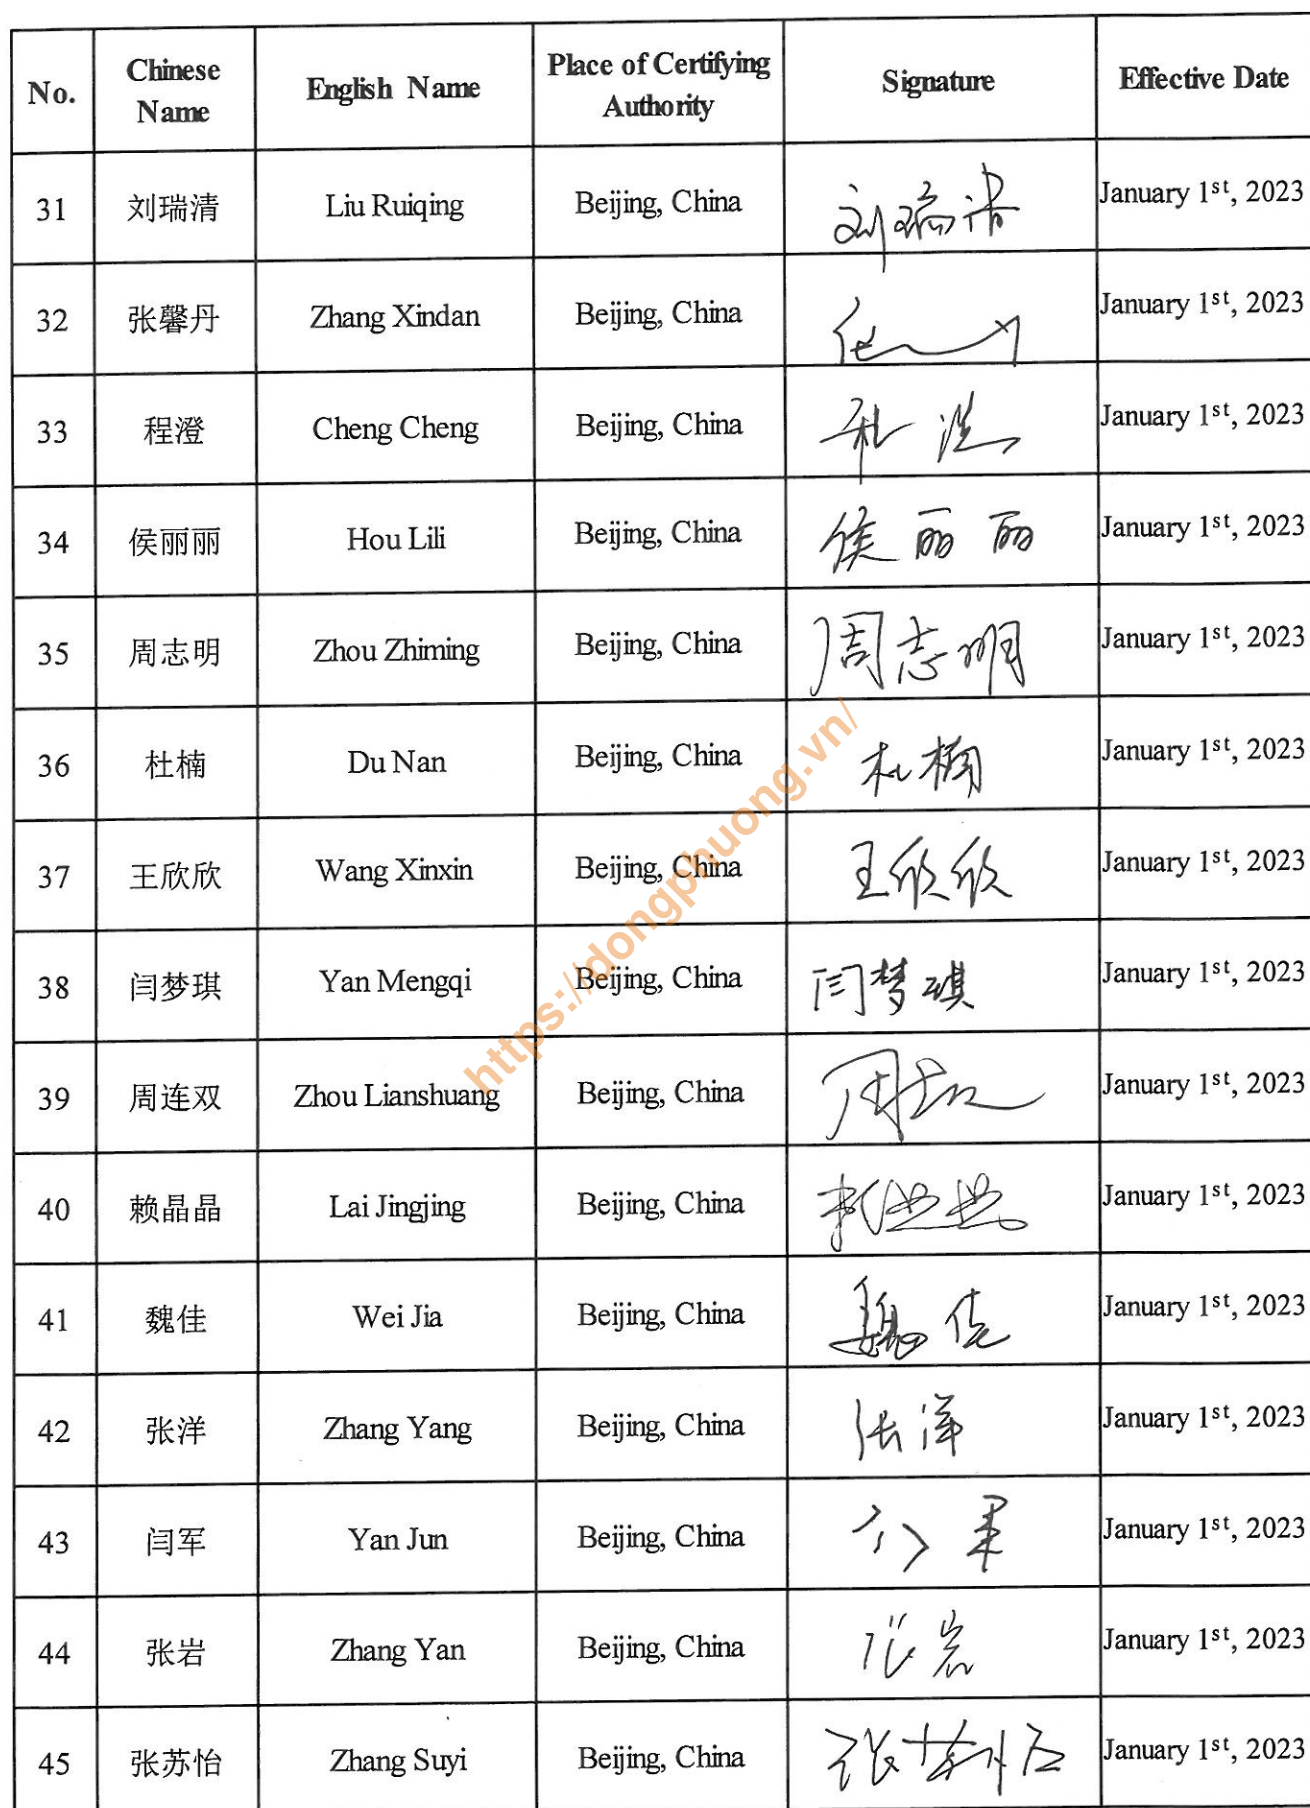 No. Chinese Name English Name Place of Certifying Authority Signature Effective Date
31 刘瑞清 Liu Ruiqing Beijing, China 刘瑞清 January 1st, 2023
32 张馨丹 Zhang Xindan Beijing, China January 1st, 2023
33 程澄 Cheng Cheng Beijing, China January 1st, 2023
34 侯丽丽 Hou Lili Beijing, China 侯丽丽 January 1st, 2023
35 周志明 Zhou Zhiming Beijing, China 周志明 January 1st, 2023
36 杜楠 Du Nan Beijing, China 杜楠 January 1st, 2023
37 王欣欣 Wang Xinxin Beijing, China 王欣欣 January 1st, 2023
38 闫梦琪 Yan Mengqi Beijing, China 闫梦琪 January 1st, 2023
39 周连双 Zhou Lianshuang Beijing, China January 1st, 2023
40 赖晶晶 Lai Jingjing Beijing, China January 1st, 2023
41 魏佳 Wei Jia Beijing, China 魏佳 January 1st, 2023
42 张洋 Zhang Yang Beijing, China 张洋 January 1st, 2023
43 闫军 Yan Jun Beijing, China January 1st, 2023
44 张岩 Zhang Yan Beijing, China 张岩 January 1st, 2023
45 张苏怡 Zhang Suyi Beijing, China January 1st, 2023
https://dongphuong.vn/